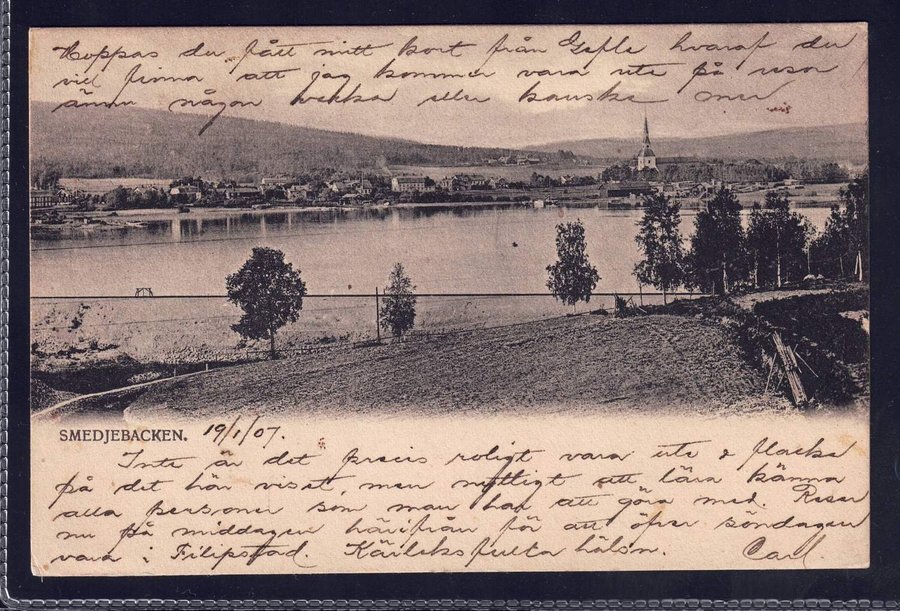 Hoppas du fått mitt kort från Gefle hvaraf du
vid finna att jag kommer vara ute på resor
ännu någon vecka eller kanske mer
SMEDJEBACKEN. 19/1/07.
Inte är det precis roligt vara ute o flacka
på det här viset, men nyttigt att lära känna
alla personer som man har att göra med. Reser
nu på middagen härifrån för att öfver söndagen
vara i Filipstad. Kärleksfulla hälsn. Carl.